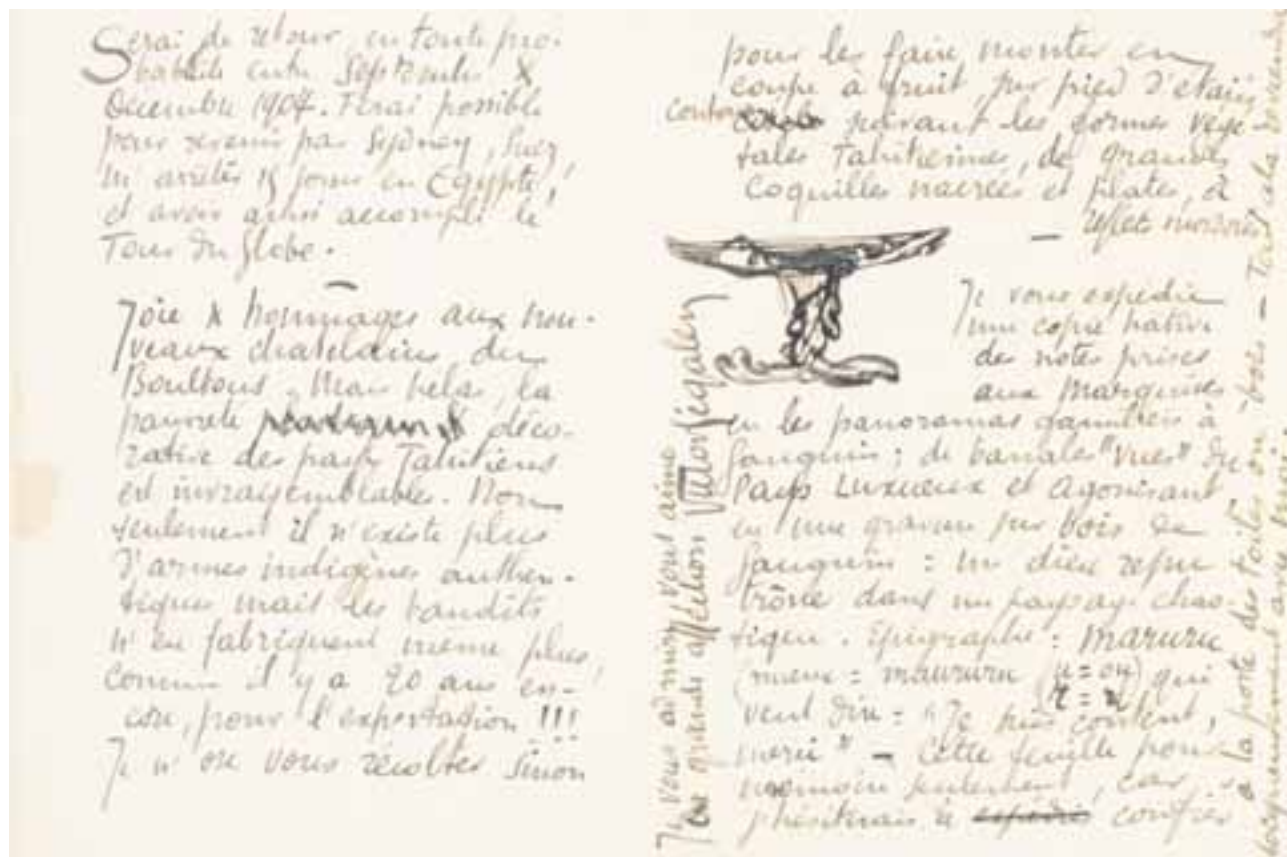 Serai de retour, en toute pro-
babilité entre Septembre &
Décembre 1904. Ferai possible
pour revenir par Sydney, Suez
m'arrêter 15 jours en Egypte,
et avoir ainsi accompli le
Tour du globe.
Joie & hommages aux nou-
veaux chatelains des
Boultons. Mais helas, la
pauvreté déco-
rative des pays Tahitiens
est invraisemblable. Non
seulement il n'existe plus
d'armes indigènes authen-
tiques mais les bandits
n'en fabriquent meme plus,
comme il y a 20 ans en-
core, pour l'exportation !!!
Je n'ose vous récolter sinon
pour les faire monter en
coupe à fruit, sur pied d'étain
suivant les formes végé-
tales Tahitiennes, de grandes
coquilles nacrées et plates, à
reflet mordoré
— Je vous expedie
une copie hative
des notes prises
aux Marquises
en les panoramas familiers à
Gauguin ; de banales "vues" du
Pays Luxueux et Agonisant
en une gravure sur bois de
Gauguin : un dieu repu
trône dans un paysage chao-
tique. Epigraphe : Maruru
(mieux = maururu (u = ou) qui
veut dire = "Je suis content,
merci" — Cette feuille pour
memoire seulement, car
j'hésiterais à confier
à la poste des toiles ou bois — Tout cela
Je vous admire, vous aime
en grande affection Victor Segalen